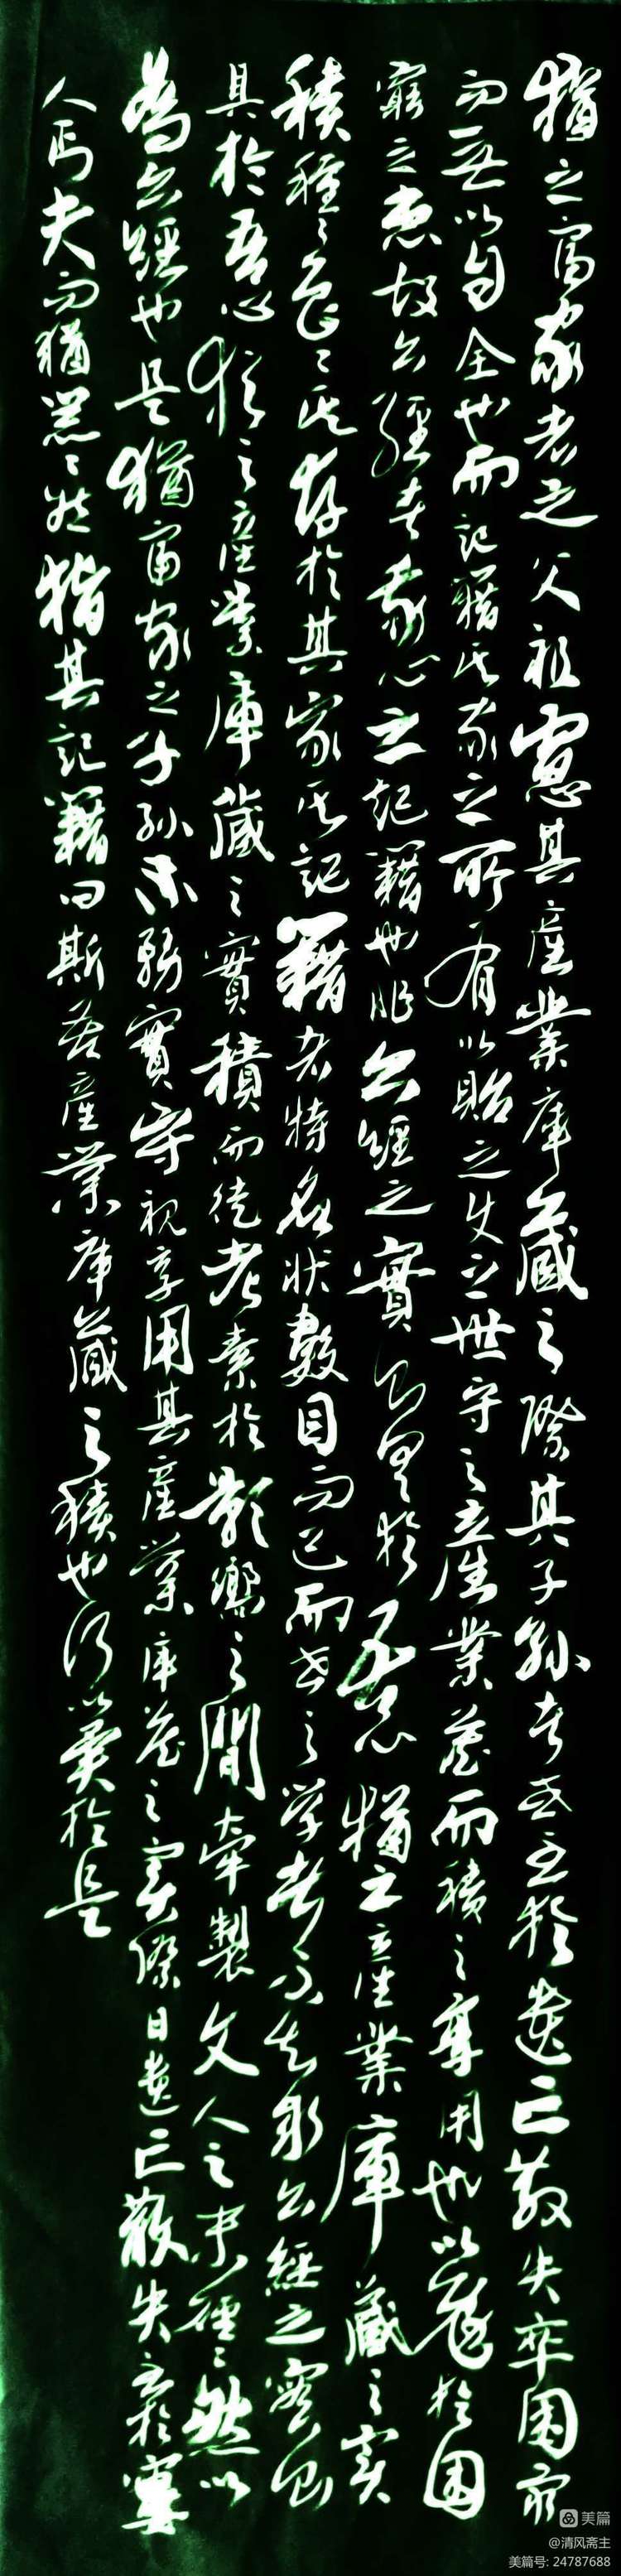 猶之富家者之父祖慮其產業庫藏之際其子孫者或至於遺亡散失卒困窮
而無以自全也而記籍其家之所有以貽之使之世守之產業藏而積之享用也以免於困
窮之患故六經者吾心之記籍也非六經之實則具於吾心猶之產業庫藏之實
積種々色々其存於其家其記籍者特名狀數目而已而世之学者不知求六經之實則
具於吾心猶之產業庫藏之實積而徒考索於影響之間牽製文人之末硜々然以
為六經也是猶富家之子孫不務實守視享用其產業庫藏之実際日遺亡散失至於窶
人丐夫而猶囂々然猶其記籍曰斯吾產業庫藏之積也何以異於是
美篇
@清风斋主
美篇号: 24787688